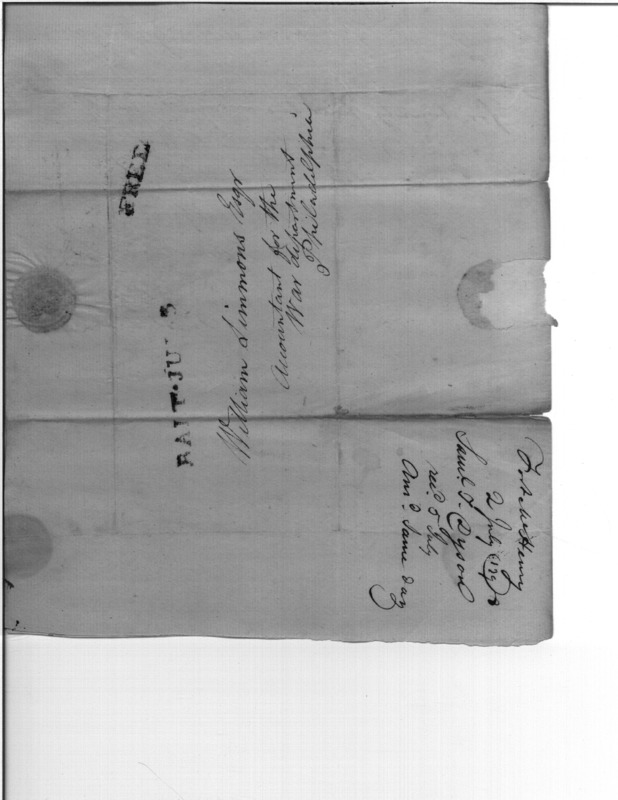 FREE
BALT. JU 3
William Simmons Esqr
Accountant for the
War department
Philadelphia
Fort McHenry
2 July 179
Saml. T. Dyson
recd. 5 July
Ansd. Same day